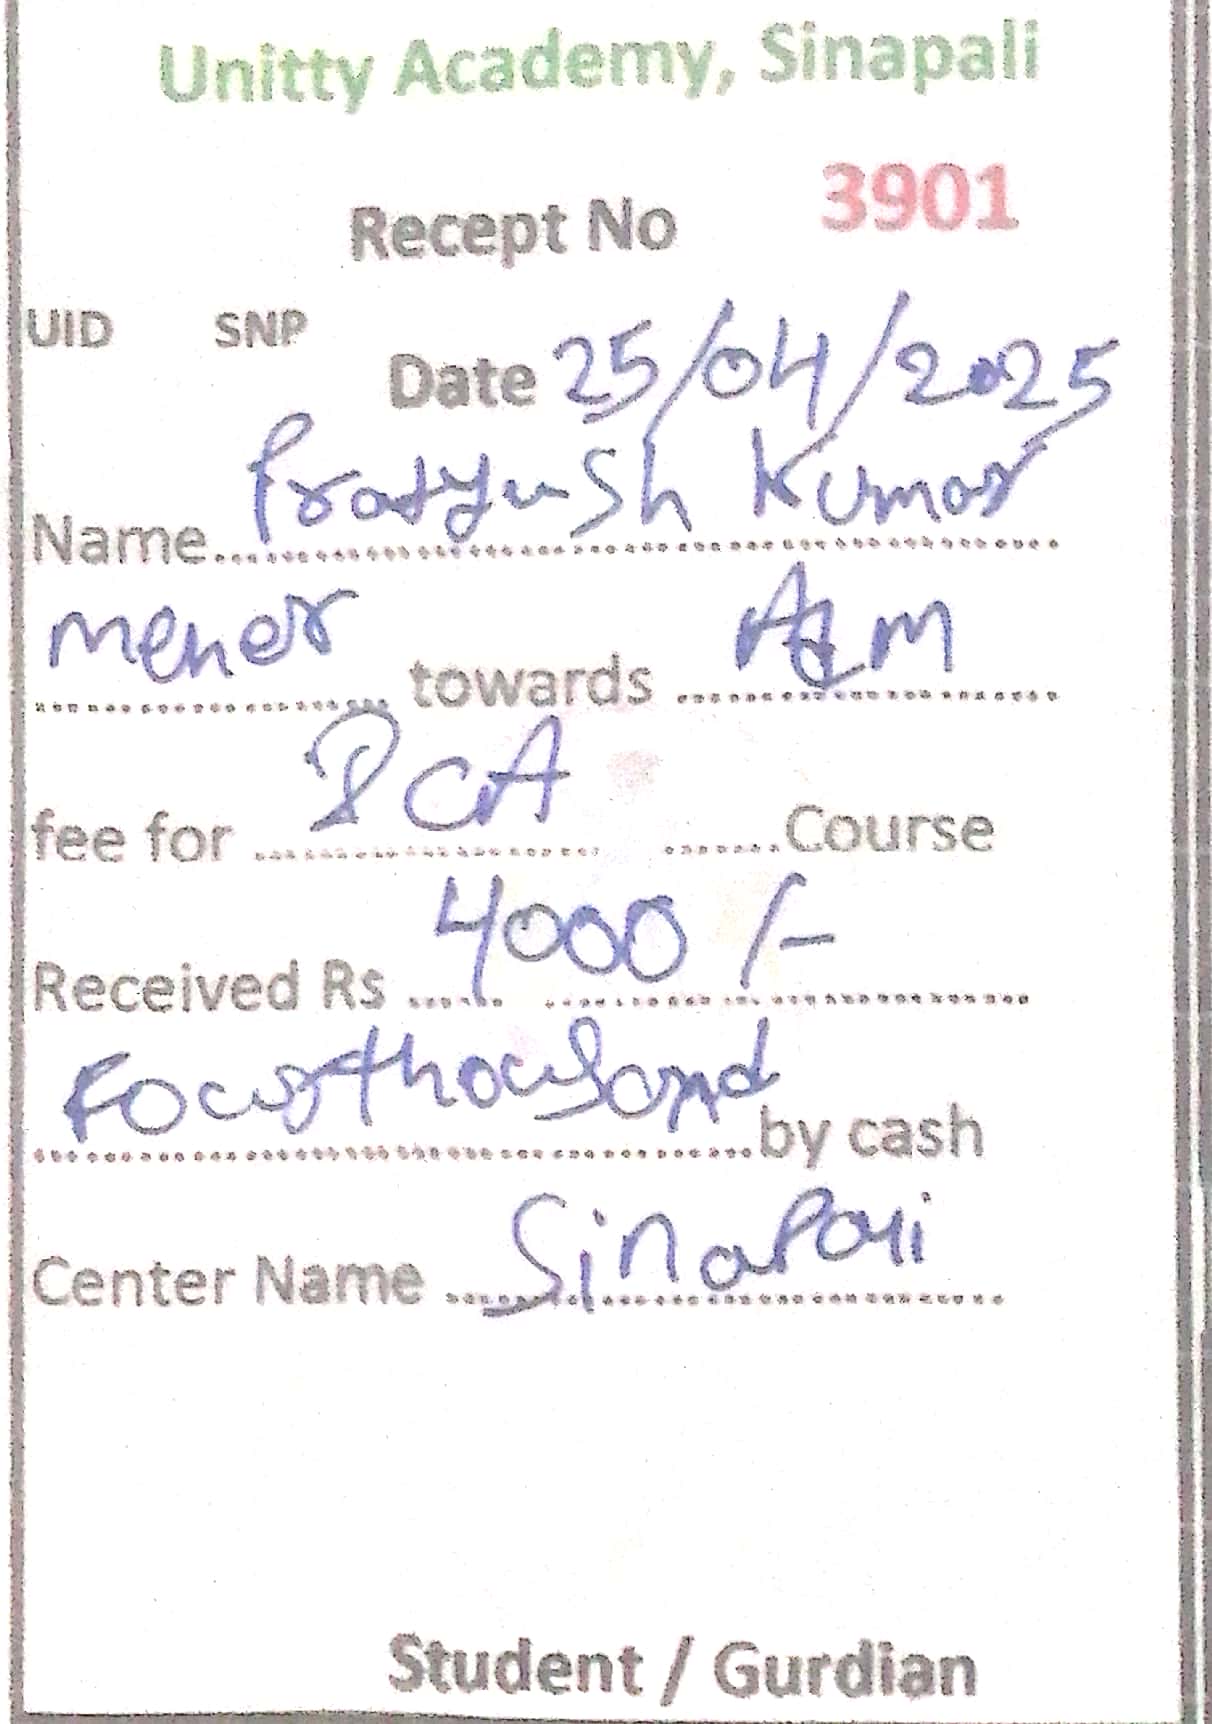 Unitty Academy, Sinapali
Recept No 3901
UID SNP
Date 25/04/2025
Name Pratyush Kumar
Meher towards
fee for CA Course
Received Rs 4000 /-
Fourthousand by cash
Center Name Sinapali
Student / Gurdian